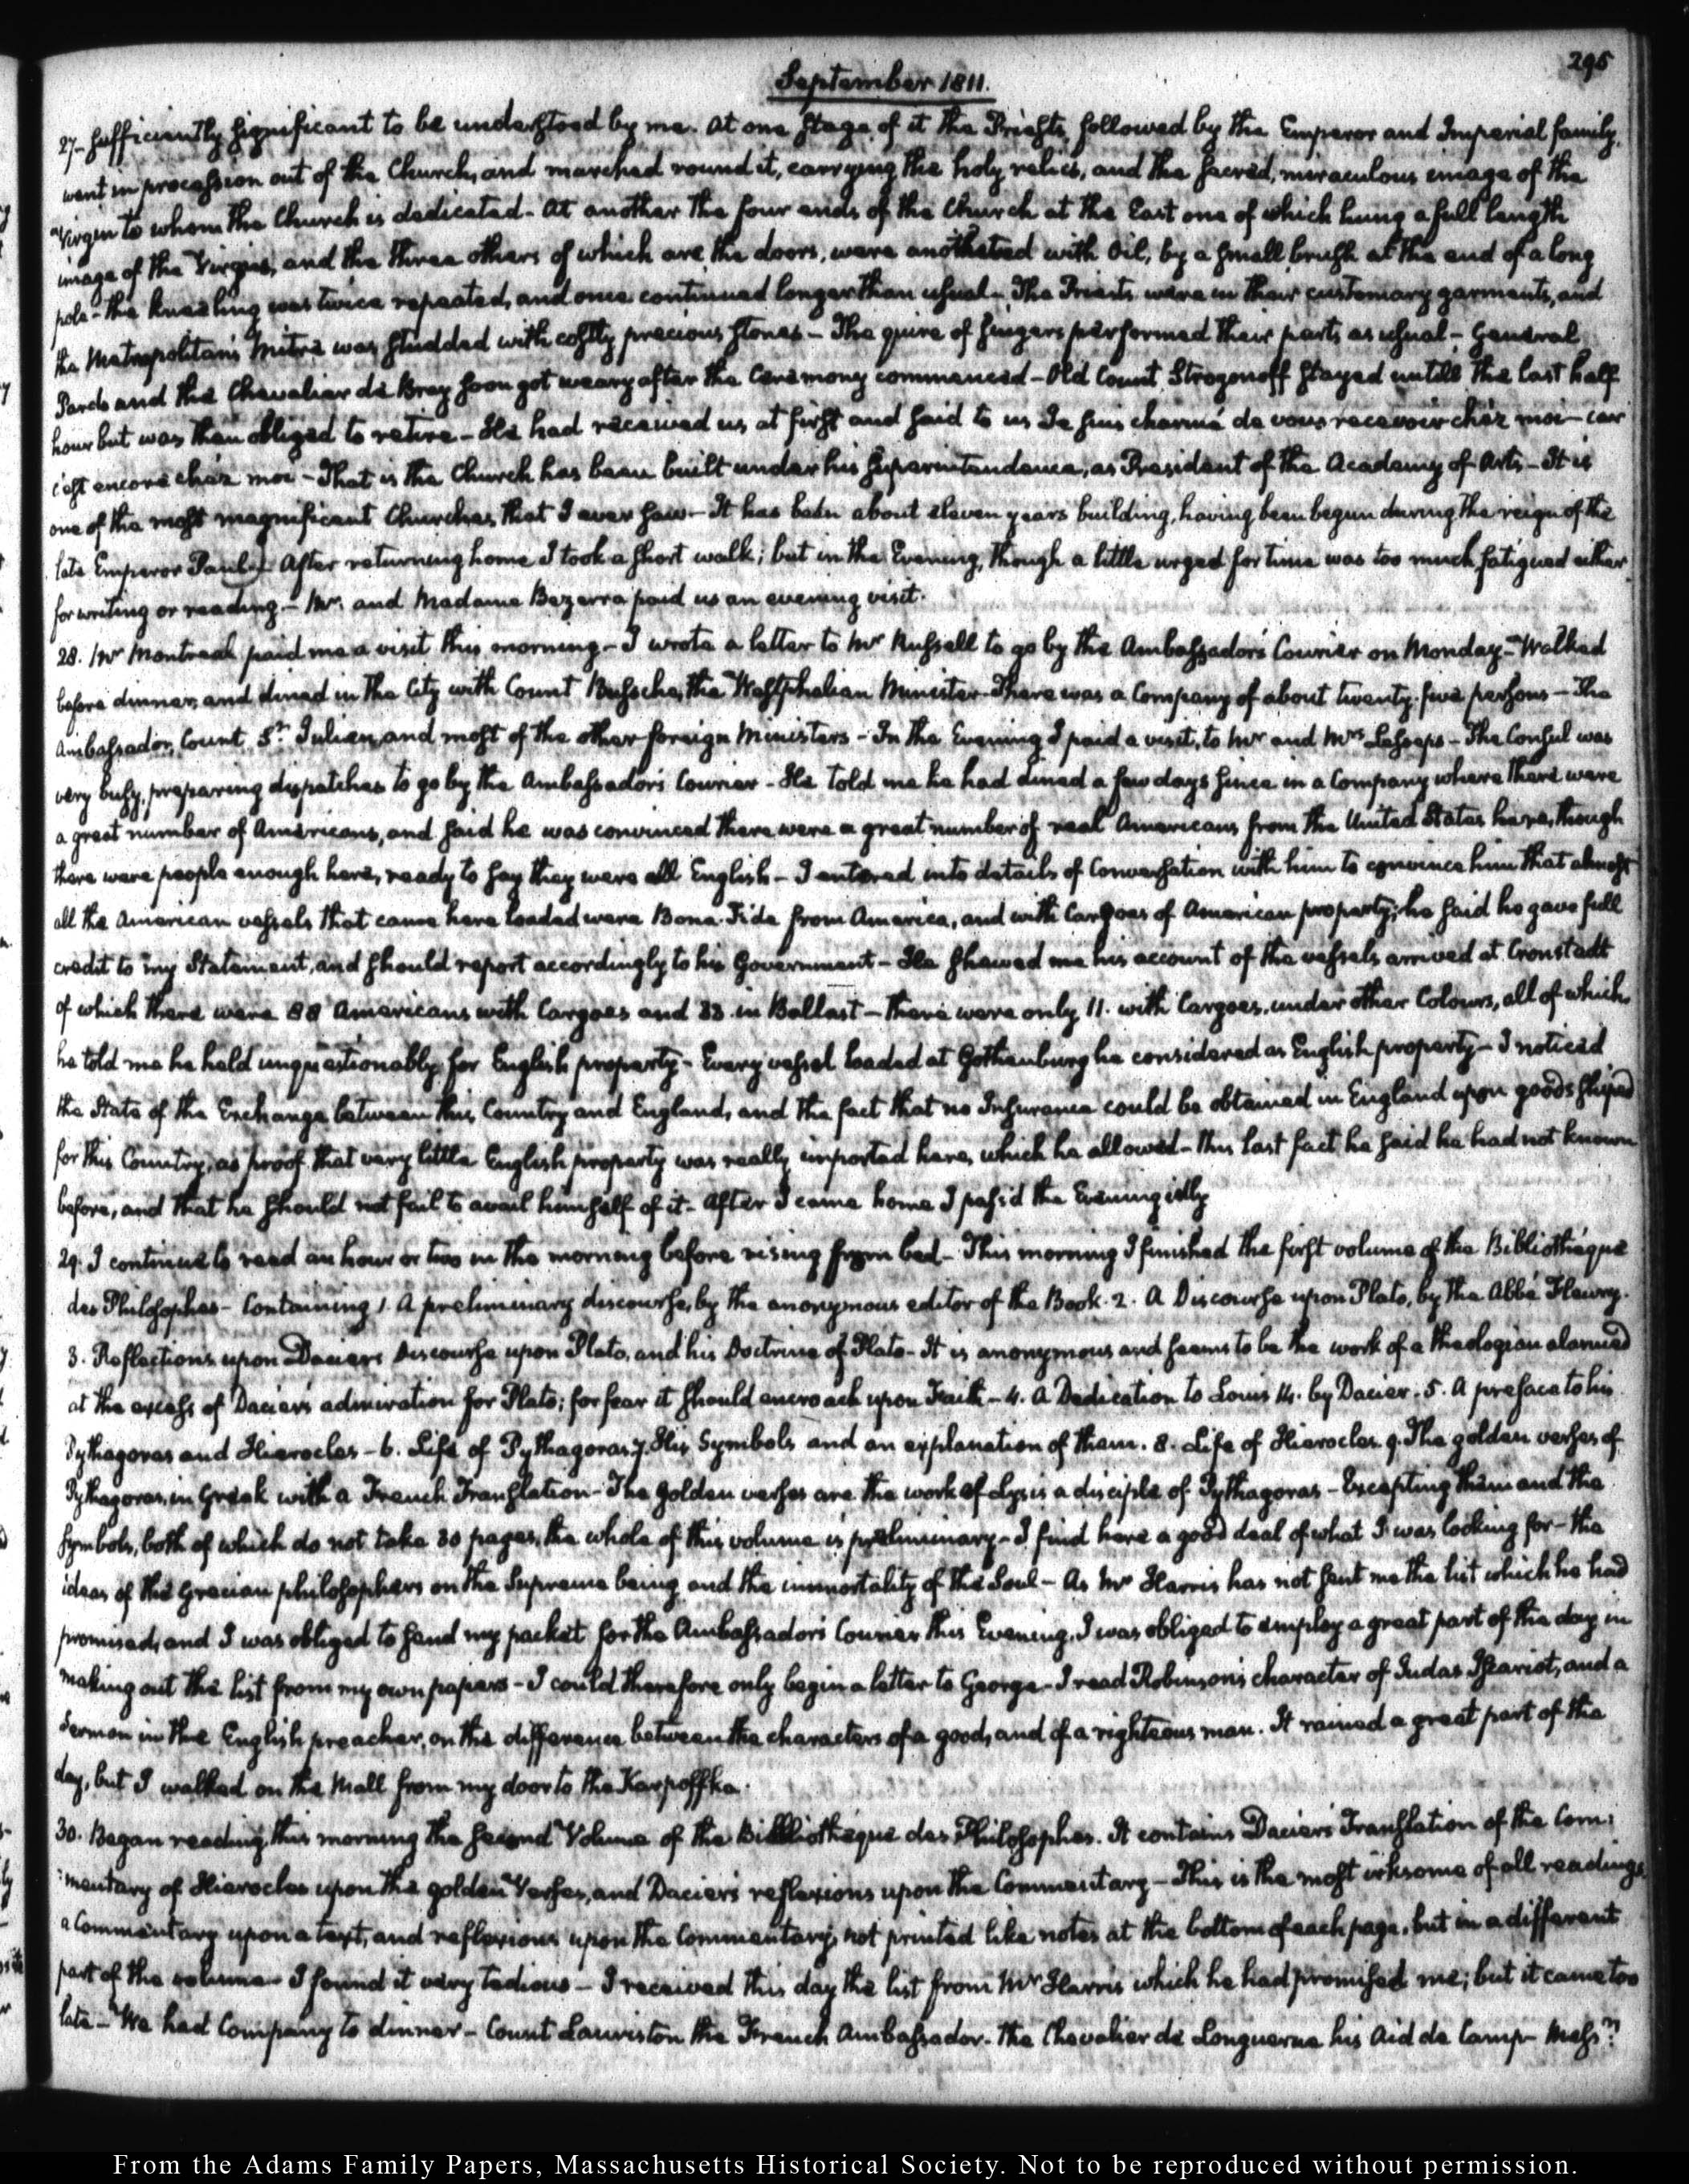 295
September 1811.
27- sufficiently significant to be understood by me. At one stage of it the Priests, followed by the Emperor and Imperial family,
went in procession out of the Church, and marched round it, carrying the holy relics, and the sacred, miraculous image of the
Virgin to whom the Church is dedicated- At another the four ends of the Church at the East one of which hung a full length
image of the Virgin, and the three others of which are the doors, were with Oil, by a small brush at the end of a long
pole- the kneeling was twice repeated, and once continued longer than usual- The Priests were in their customary garments, and
the Metropolitan's Mitre was studded with costly precious stones- The quire of singers performed their parts as usual- General
Pardo and the Chevalier de Bray soon got weary after the Ceremony commenced- Old Count Strogonoff stayed untill the last half
hour but was then obliged to retire- He had received us at first and said to us Je suis charmé de vous recevoir chéz moi- car
c'est encore chéz moi- That is the Church has been built under his superintendence, as President of the Academy of Arts- It is
one of the most magnificent Churches that I ever saw- It has been about eleven years building, having been begun during the reign of the
late Emperor Paul. After returning home I took a short walk; but in the Evening, though a little urged for time was too much fatigued either
for writing or reading- Mr. and Madame Bezerra paid us an evening visit.
28. Mr Montreal paid me a visit this morning- I wrote a letter to Mr Russell to go by the Ambassador's Courier on Monday- Walked
before dinner, and dined in the City with Count Bussche, the Westphalian Minister- There was a Company of about twenty-five persons- The
Ambassador, Count St. Julien, and most of the other foreign Ministers- In the Evening I paid a visit, to Mr and Mrs Lesseps- The Consul was
very busy, preparing dispatches to go by the Ambassador's Courier- He told me he had dined a few days since in a Company where there were
a great number of Americans, and said he was convinced there were a great number of real Americans from the United States here, though
there were people enough here, ready to say they were all English- I entered into details of Conversation with him to convince him that almost
all the American vessels that came here loaded were Bona-Fide from America, and with Cargoes of American property; he said he gave full
credit to my Statement, and should report accordingly to his Government- He shewed me his account of the vessels arrived at Cronstadt
of which there were 88 Americans with Cargoes and 33 in Ballast- there were only 11. with Cargoes, under other Colours, all of which
he told me he held unquestionably for English property- Every vessel loaded at Gothenburg he considered as English property- I noticed
the State of the Exchange between this Country and England, and the fact that no Insurance could be obtained in England upon goods shiped
for this Country, as proof that very little English property was really imported here, which he allowed- this last fact he said he had not known
before, and that he should not fail to avail himself of it- After I came home I pass'd the Evening idly
29. I continue to read an hour or two in the morning before rising from bed- This morning I finished the first volume of the Bibliothéque
des Philosophes- Containing 1. A preliminary discourse, by the anonymous editor of the Book. 2. A Discourse upon Plato, by the Abbé Fleury.
3. Reflections upon Dacier's Discourse upon Plato, and his Doctrine of Plato- It is anonymous and seems to be the work of a theologian alarmed
at the excess of Dacier's admiration for Plato; for fear it should encroach upon Faith- 4. A Dedication to Louis 14. by Dacier. 5. A preface to his
Pythagoras and Hierocles- 6. Life of Pythagoras 7. His Symbols and an explanation of them. 8. Life of Hierocles. 9. The golden verses of
Pythagoras, in Greek with a French Translation- The golden verses are the work of Lysis a disciple of Pythagoras- Excepting them and the
symbols, both of which do not take 30 pages, the whole of this volume is preliminary- I find here a good deal of what I was looking for- the
ideas of the Grecian philosophers on the Supreme being, and the immortality of the Soul- As Mr Harris has not sent me the list which he had
promised, and I was obliged to send my packet for the Ambassador's Courier this Evening, I was obliged to employ a great part of the day in
making out the list from my own papers- I could therefore only begin a letter to George- I read Robinson's character of Judas Iscariot, and a
Sermon in the English preacher, on the difference between the characters of a good, and of a righteous man. It rained a great part of the
day, but I walked on the Mall from my door to the Karpoffka.
30. Began reading this morning the second Volume of the Bibliothéque des Philosophes. It contains Dacier's Translation of the Com:
:mentary of Hierocles upon the golden Verses, and Dacier's reflexions upon the Commentary- This is the most irksome of all readings,
a Commentary upon a text, and reflexions upon the Commentary, not printed like notes at the bottom of each page, but in a different
part of the volume- I found it very tedious- I received this day the list from Mr Harris which he had promised me; but it came too
late- We had Company to dinner- Count Lauriston the French Ambassador. The Chevalier de Longuerue his Aid de Camp- Messrs.
From the Adams Family Papers, Massachusetts Historical Society. Not to be reproduced without permission.